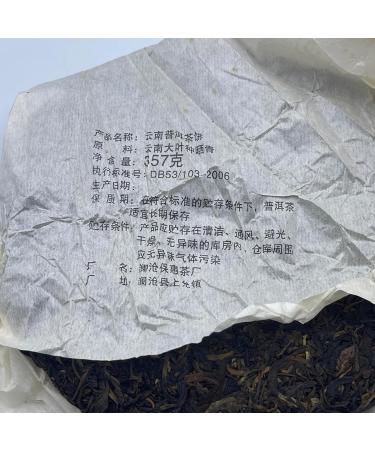 产品名称：云南普洱茶饼
原　料：云南大叶种晒青
净 含 量：357克
执行标准号：DB53/103-2006
生产日期：
保 质 期：在符合标准的贮存条件下，普洱茶
适宜长期保存
贮存条件：产品应贮存在清洁、通风、避光、
干燥、无异味的库房内，仓库周围
应无异味气体污染
厂　名：澜沧保惠茶厂
厂　址：澜沧县上允镇